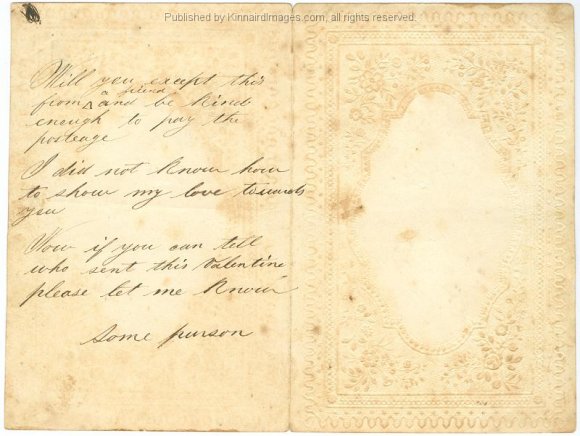 Published by KinnairdImages.com, all rights reserved.
Will you except this
a friend
from ^ and be kind
enough to pay the
posteage
I did not know how
to show my love towards
you
Now if you can tell
who sent this Valentine
please let me know
some purson